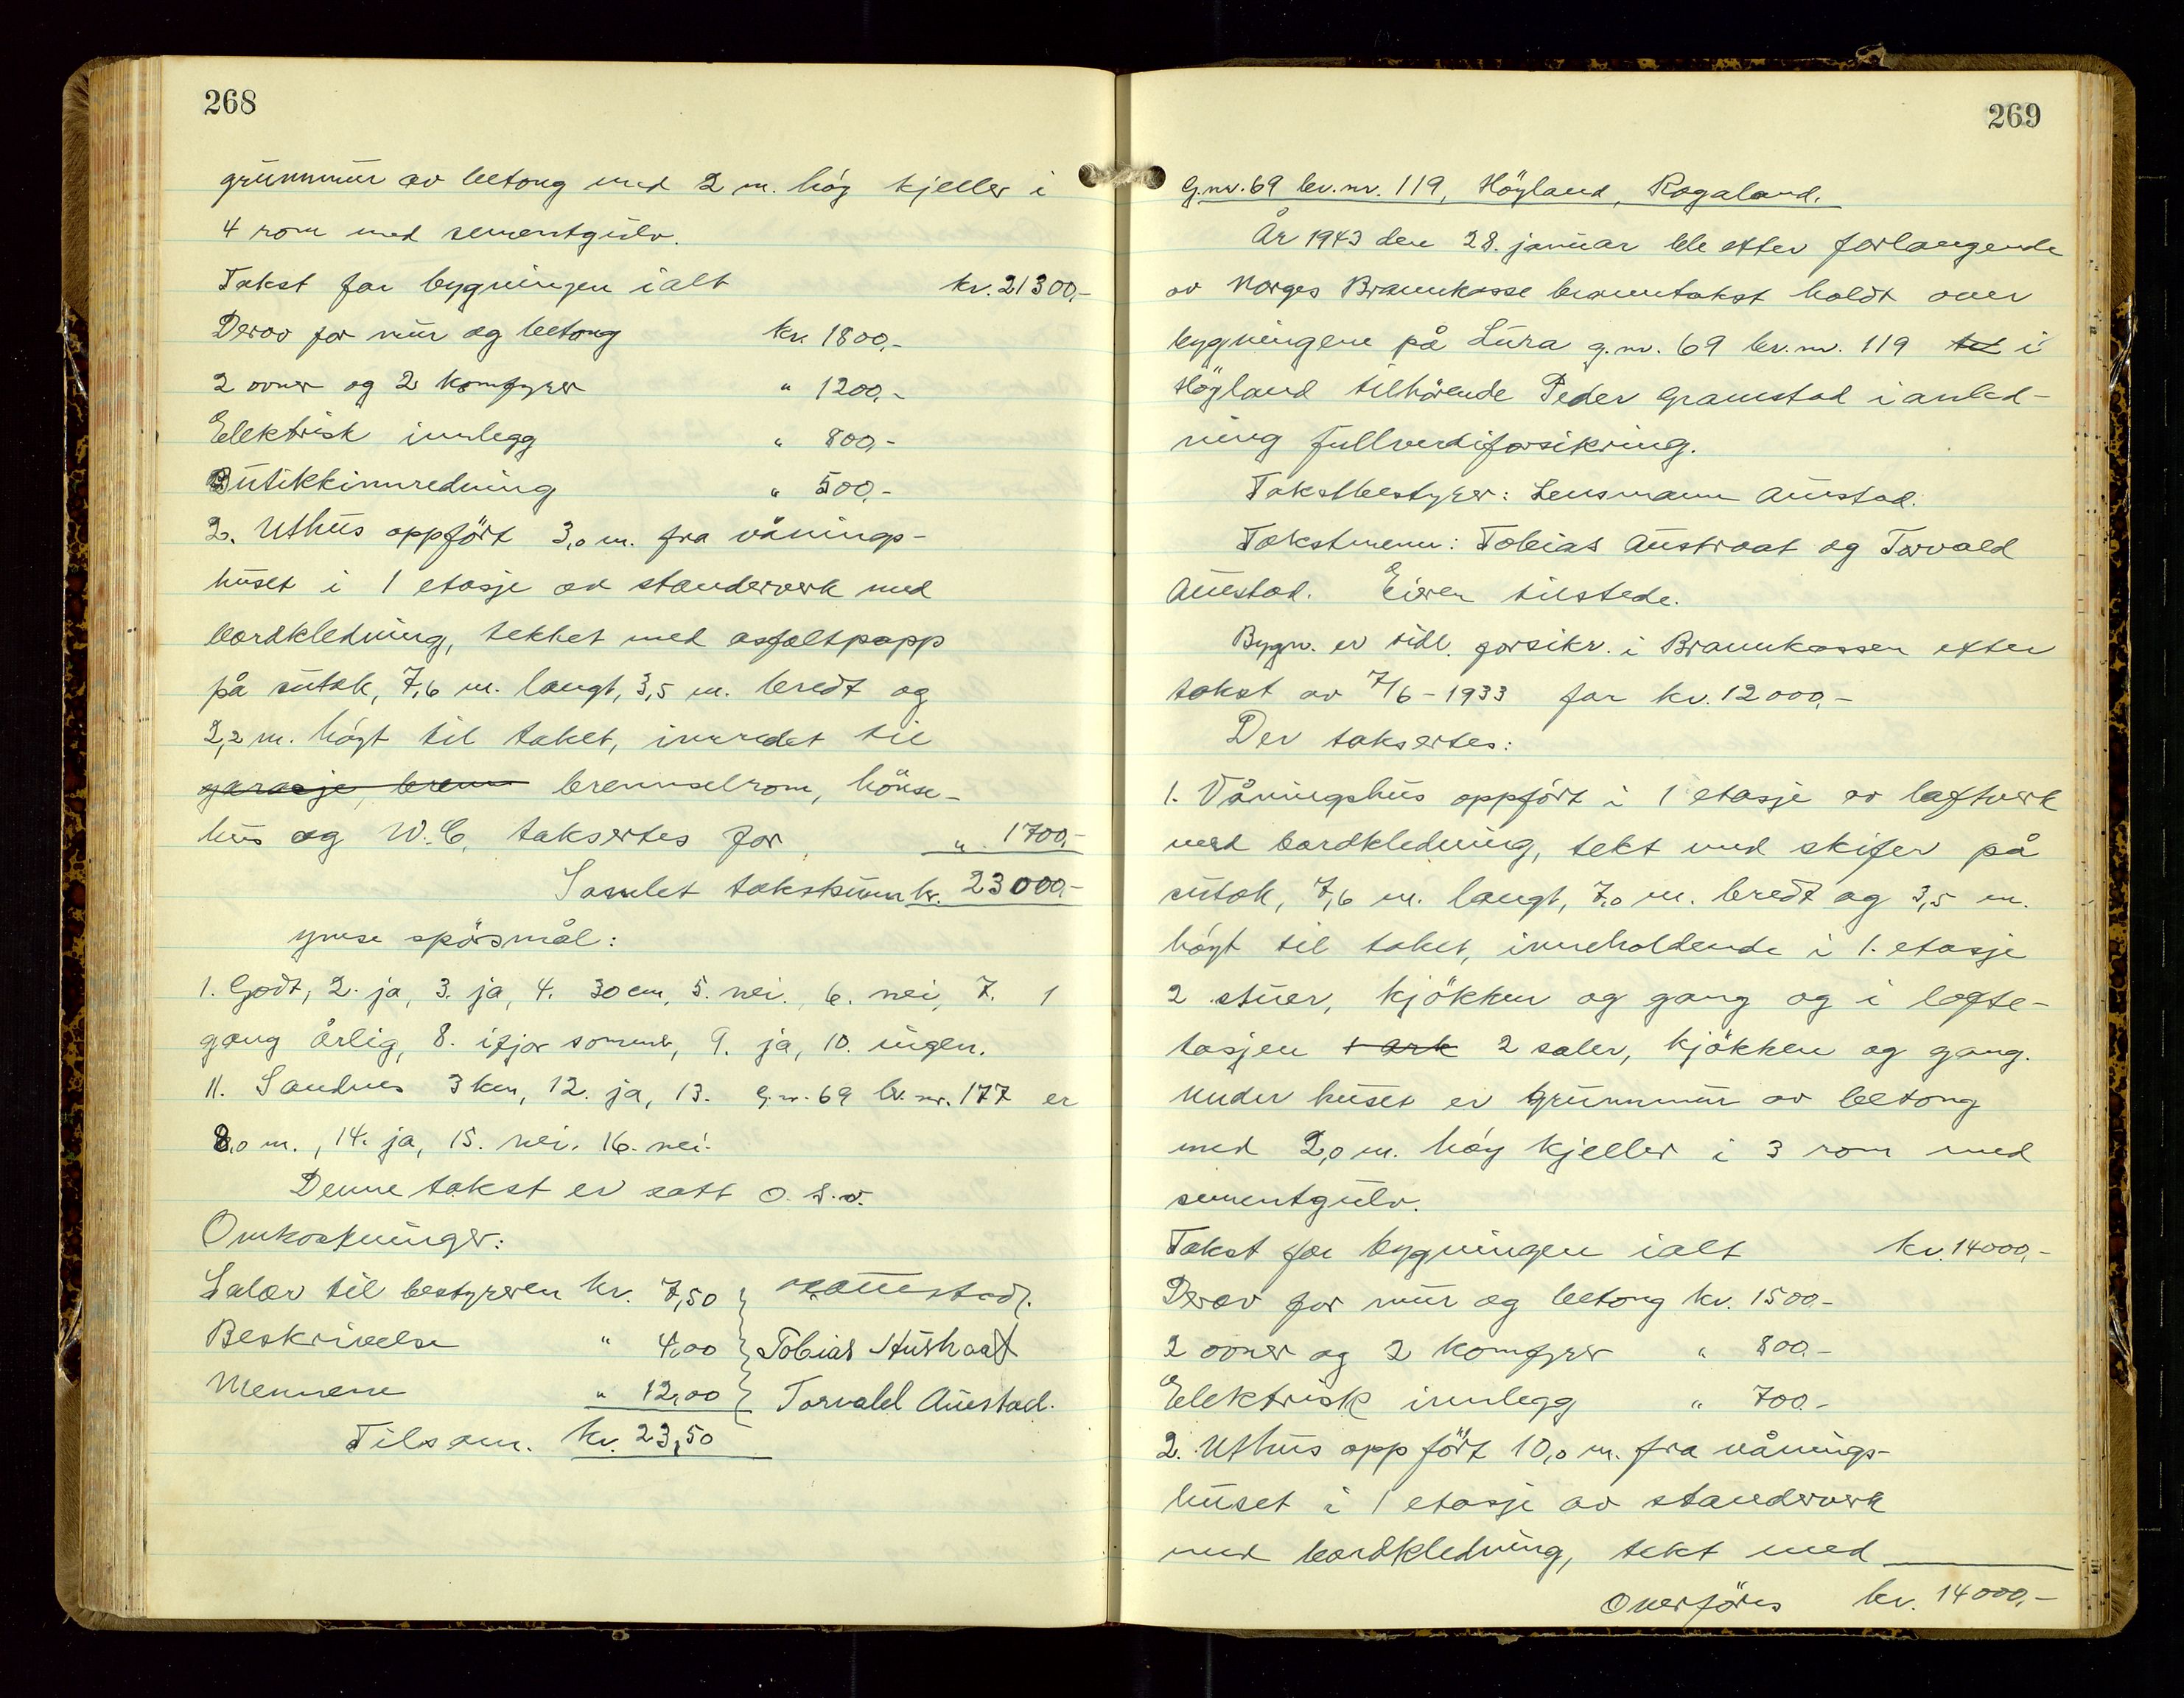 268
grunnmur av betong med 2 m. høg kjeller i
4 rom med sementgulv.
Takst for bygningen ialt kr. 21300,-
Derav for mur og betong kr. 1800,-
2 ovner og 2 komfyrer " 1200,-
Elektrisk innlegg " 800,-
Butikkinnredning " 500,-
2. Uthus oppfört 3,0 m. fra vånings-
huset i 1 etasje av standerverk med
bordkledning, tekket med asfaltpapp
på sutak, 7,6 m. langt, 3,5 m. bredt og
2,2 m. högt til taket, innredet til
garasje, brenn brenselrom, hönse-
hus og W.C. taksertes for " 1700,-
Samlet takstsum kr. 23000,-
ymse spörsmål:
1. Godt, 2. ja, 3. ja, 4. 30 cm, 5. nei., 6. nei, 7. 1
gang årlig, 8. ifjor sommer, 9. ja, 10. ingen.
11. Sandnes 3 km, 12. ja, 13. g.nr. 69 br.nr. 177 er
8,0 m., 14. ja, 15. nei. 16. nei.
Denne takst er satt o.s.v.
Omkostninger:
Salær til bestyreren kr. 7,50 } Aaustad.
Beskrivelse " 4,00 } Tobias Austraat
Mennene " 12,00 } Torvald Austad.
Tilsam. kr. 23,50
269
G.nr. 69 br.nr. 119, Höyland, Rogaland.
År 1943 den 28. januar ble etter forlangende
av Norges Brannkasse branntakst holdt over
bygningene på Lura g.nr. 69 br.nr. 119 tel i
Höyland tilhörende Peder Gramstad i anled-
ning fullverdiforsikring.
Takstbestyrer: Lensmann Austad.
Takstmenn: Tobias Austraat og Torvald
Austad. Eieren tilstede.
Bygn. er tidl. forsikr. i Brannkassen etter
takst av 7/6-1933 for kr. 12000,-
Der taksertes:
1. Våningshus oppfört i 1 etasje av laftverk
med bordkledning, tekt med skifer på
sutak, 7,6 m. langt, 7,0 m. bredt og 3,5 m.
högt til taket, inneholdende i 1. etasje
2 stuer, kjökken og gang og i lofte-
tasjen 1 ark 2 saler, kjökken og gang.
Under huset er grunnmur av betong
med 2,0 m. høy kjeller i 3 rom med
sementgulv.
Takst for bygningen ialt kr. 14000,-
Derav for mur og betong kr. 1500,-
2 ovner og 2 komfyrer " 800,-
Elektrisk innlegg " 700,-
2. Uthus oppfört 10,0 m. fra vånings-
huset i 1 etasje av standerverk
med bordkledning, tekt med
Overföres kr. 14000,-